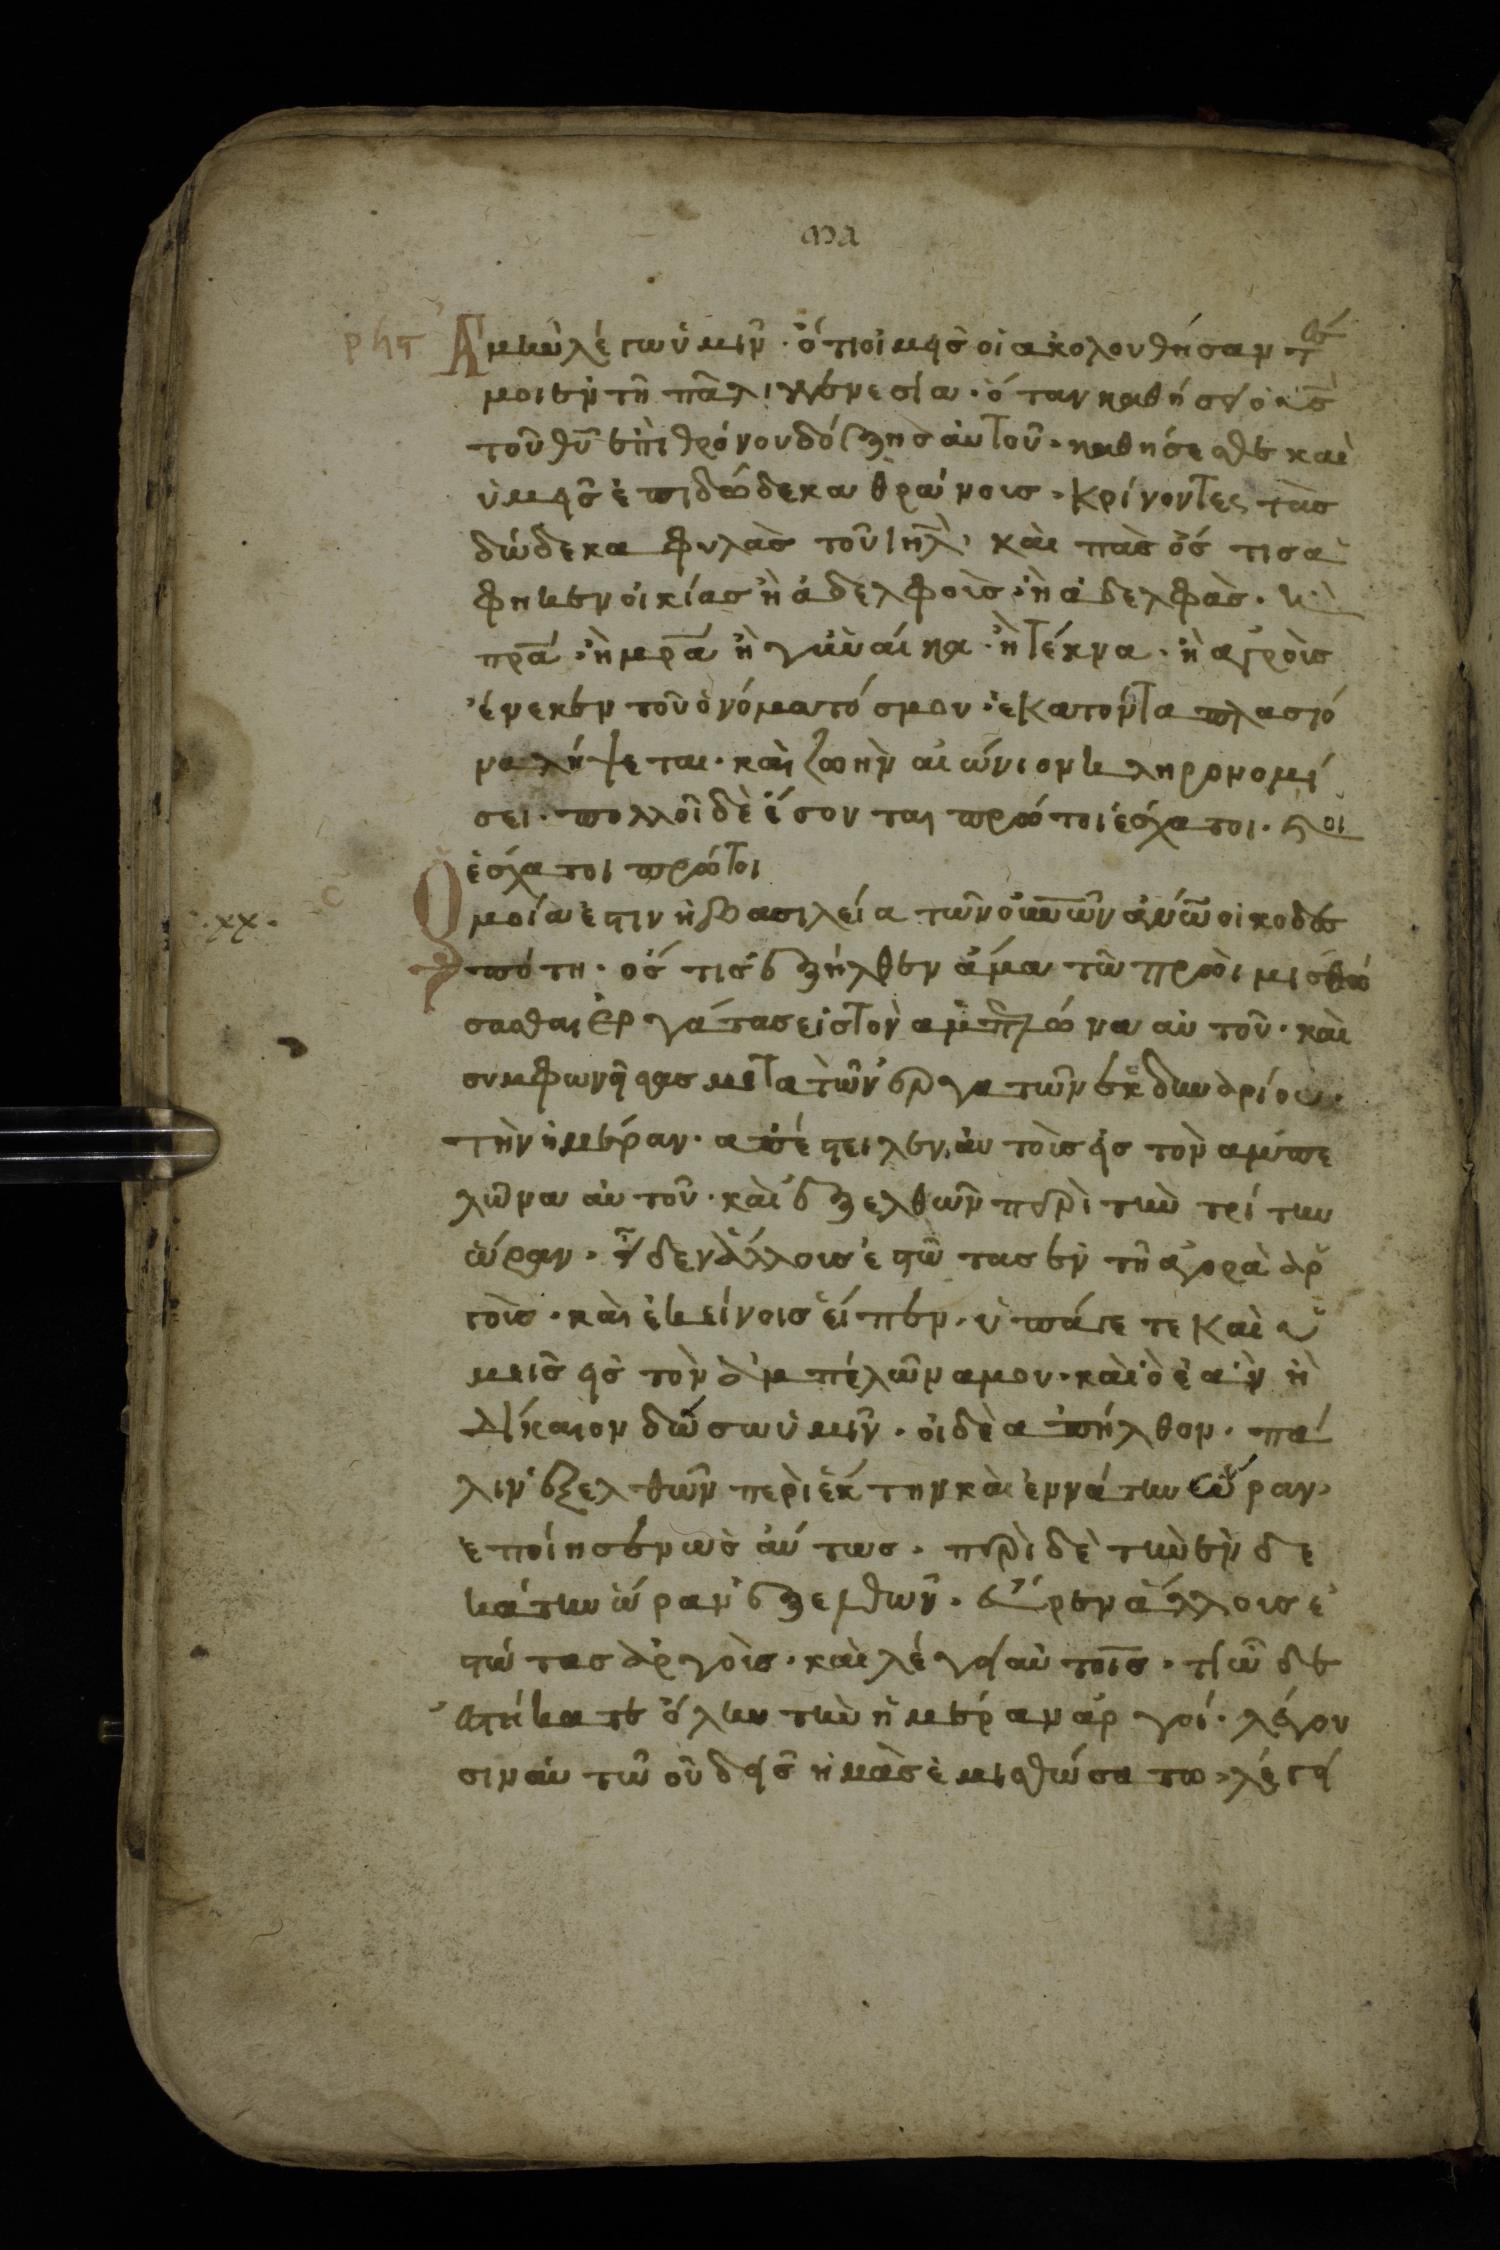 μα
Ἀμὴν λέγω ὑμῖν · ὅτι οἱμεῖσ οἱ ἀκολουθήσαντέσ
μοι ἐν τῆ παλιγγενεσία · ὅταν καθήσει ὁ υἱὸσ
τοῦ θυ ἐπὶ θρόνου δόξησ αὐτοῦ · καθήσεσθε καὶ
ὑμεῖσ ἐπὶ δώδεκα θρώνοισ · κρίνοντες τὰσ
δώδεκα φυλὰσ τοῦ ιηλ · καὶ πὰσ ὅσ τισ ἀ
φηκεν οἰκίασ ἢ ἀδελφοὶσ · ἢ ἀδελφὰσ · ἢ
πρα · ἢ μρα ἢ γυναίκα · ἢ τέκνα · ἢ ἀγροὶσ
ἕνεκεν τοῦ ὀνόματόσ μου · ἑκατονταπλασιό
να λήψεται · καὶ ζωὴν αἰώνιον κληρονομή
σει · πολλοῖ δὲ ἔσονται πρώτοι ἔσχατοι · κ οἱ
ἐσχάτοι πρώτοι
Ὁμοία ἐστιν ἡ βασιλεία τῶν οὐνῶν ἀνῶ οἰκοδεσ
.xx. πότη · ὅσ τισ ἐξήλθεν ἅμα τῶ πρωὶ μισθώ
σασθαι ἐργάτασ εἰσ τὸν ἀμπελώνα αὐτοῦ · καὶ
συμφωνήσασ μετὰ τῶν ἐργατῶν ἐκ δηναρίου ·
τὴν ἡμέραν · ἀπέστειλεν αὐτοὶσ εἰσ τὸν ἀμπε
λῶνα αὐτοῦ · καὶ ἐξελθῶν περὶ τὴν τρίτην
ὥραν · ἶδεν ἄλλοισ ἐστῶτασ ἐν τῆ ἀγορὰ ἀρ
γοὶσ · καὶ ἐκείνοισ εἶπεν · ὑπάγετε καὶ ὑ
μεισ εἰσ τὸν ἀμπέλῶνα μου · καὶ ὃ ἐὰν ἢ
δίκαιον δώσω ὑμῖν · οἱ δὲ ἀπήλθον · πά
λιν ἐξελθῶν περὶ ἕκτην καὶ ἐννάτην ὥραν ·
ἐποίησεν ὡσαύτωσ · περὶ δὲ τὴν ἐνδε
κάτην ὥραν ἐξελθῶν · εὗρεν ἄλλοισ ἐ
στώτασ ἀργοὶσ · καὶ λέγει αὐτοῖσ · τί ὧδε
ἑστήκατε ὅλην τὴν ἡμέραν ἀργοί · λέγου
σιν αὐτῶ οὐδεῖσ ἡμὰσ ἐμισθώσατο · λέγει